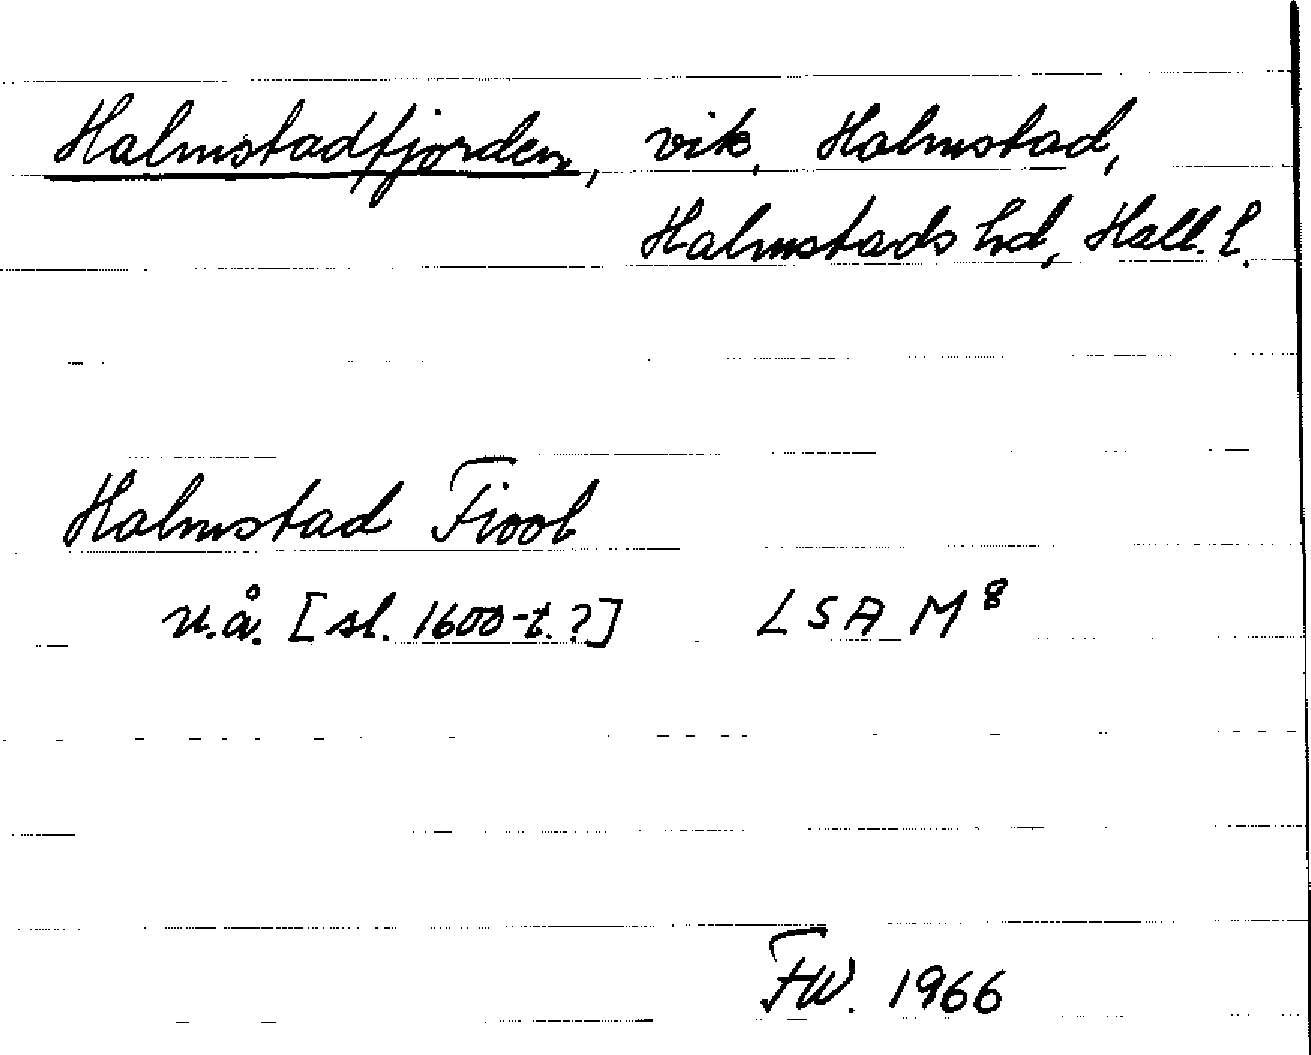 Halmstadfjorden, vik, Halmstad,
Halmstads hd, Hall. l.
Halmstad Fiool
u.å. [sl. 1600-t.?] LSA M⁸
FW. 1966